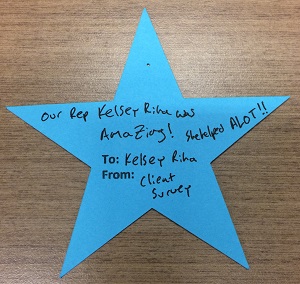 Our Rep Kelsey Riha was
Amazing! She helped ALOT!!
To: Kelsey Riha
From: Client
Survey